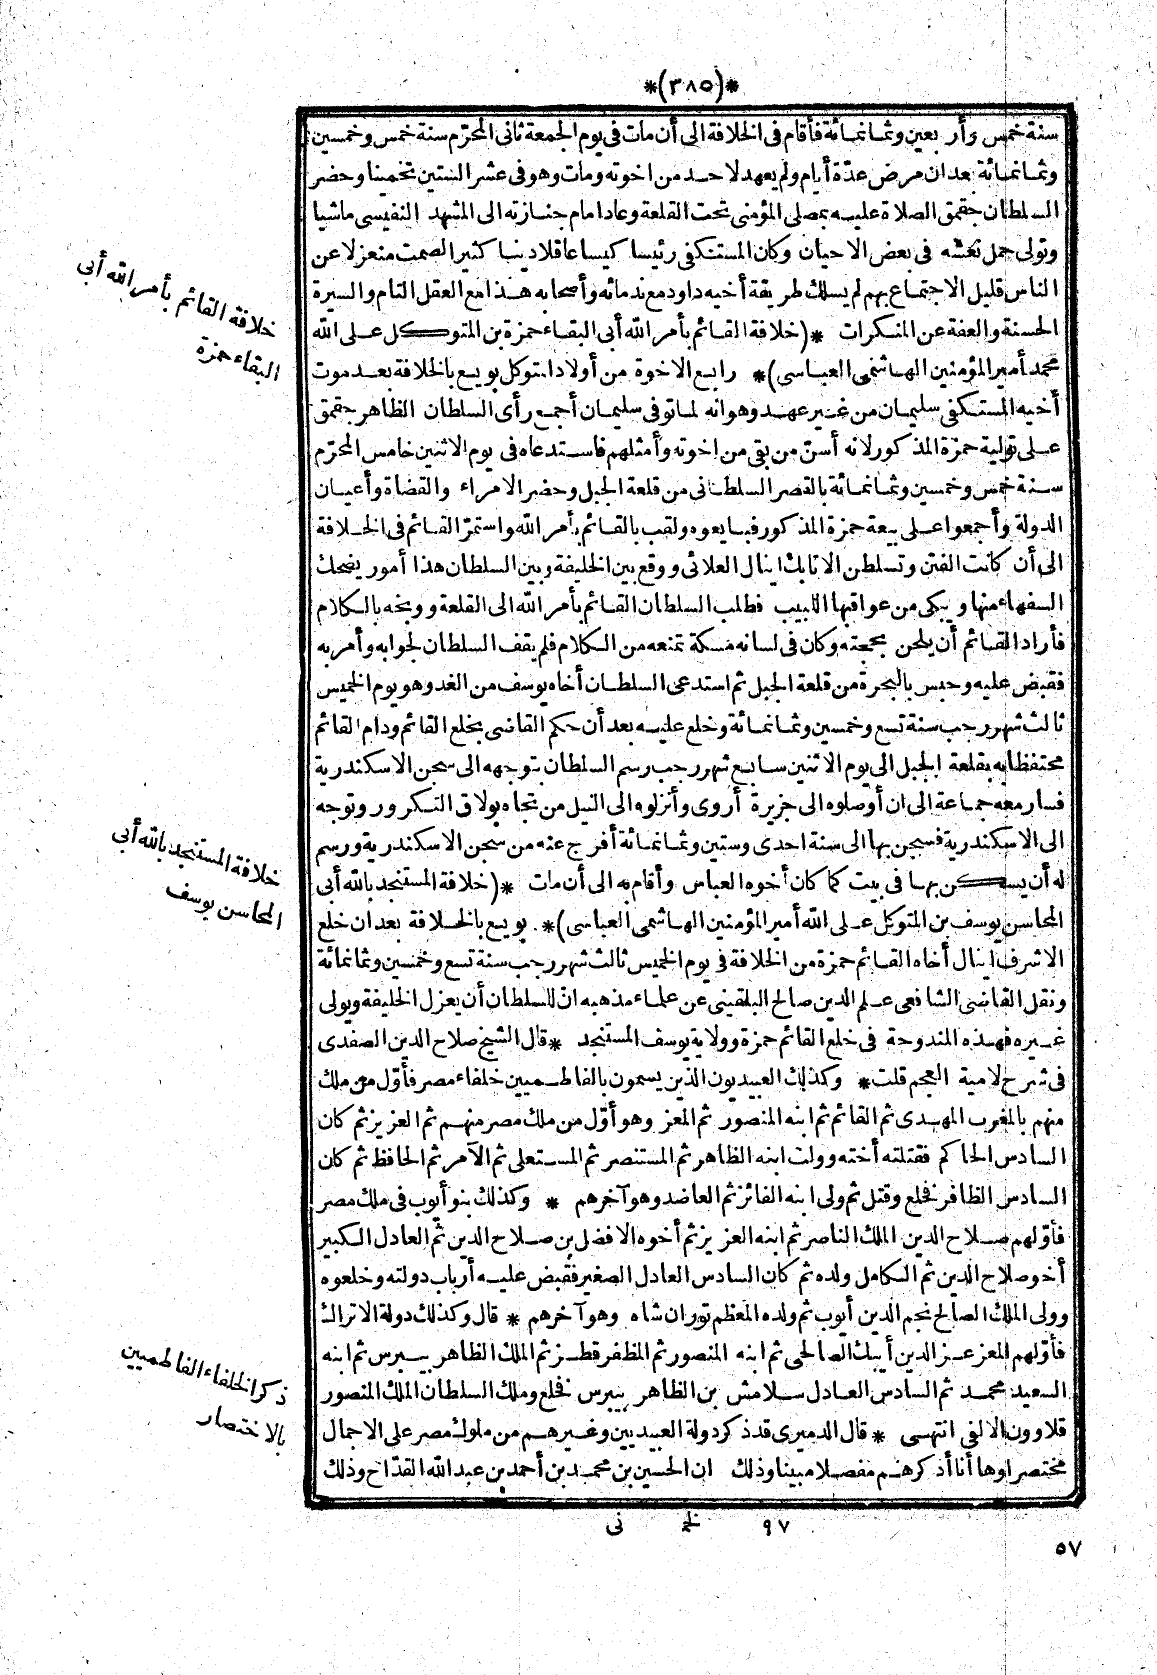 *(٣٨٥)*
سنة خمس وأربعين وثمانمائة فأقام فى الخلافة الى أن مات فى يوم الجمعة ثانى المحرّم سنة خمس وخمسين
وثمانمائة بعد ان مرض عدّة أيام ولم يعهد لاحد من اخوته ومات وهو فى عشر الستين تخمينا وحضر
السلطان جقمق الصلاة عليه بمصلى المؤمنى تحت القلعة وعاد امام جنازته الى المشهد النفيسى ماشيا
وتولى حمل نعشه فى بعض الاحيان وكان المستكفى رئيسا كيسا عاقلا دينا كثير الصمت منعزلا عن
الناس قليل الاجتماع بهم لم يسلك طريقة أخيه داود مع ندمائه وأصحابه هذا مع العقل التام والسيرة
الحسنة والعفة عن المنكرات *(خلافة القائم بأمر الله أبى البقاء حمزة بن المتوكل على الله
محمد أمير المؤمنين الهاشمى العباسى)* رابع الاخوة من أولاد المتوكل بويع بالخلافة بعد موت
أخيه المستكفى سليمان من غير عهد وهو انه لما توفى سليمان أجمع رأى السلطان الظاهر جقمق
على تولية حمزة المذكور لانه أسنّ من بقى من اخوته وأمثلهم فاستدعاه فى يوم الاثنين خامس المحرّم
سنة خمس وخمسين وثمانمائة بالقصر السلطانى من قلعة الجبل وحضر الامراء والقضاة وأعيان
الدولة وأجمعوا على بيعة حمزة المذكور فبايعوه ولقب بالقائم بأمر الله واستمرّ القائم فى الخلافة
الى أن كانت الفتن وتسلطن الاتابك اينال العلائى ووقع بين الخليفة وبين السلطان هذا أمور يضحك
السفهاء منها ويبكى من عواقبها اللبيب فطلب السلطان القائم بأمر الله الى القلعة ووبخه بالكلام
فأراد القائم أن يلحن بحجته وكان فى لسانه مسكة تمنعه من الكلام فلم يقف السلطان لجوابه وأمر به
فقبض عليه وحبس بالبحرة من قلعة الجبل ثم استدعى السلطان أخاه يوسف من الغد وهو يوم الخميس
ثالث شهر رجب سنة تسع وخمسين وثمانمائة وخلع عليه بعد أن حكم القاضى بخلع القائم ودام القائم
محتفظا به بقلعة الجبل الى يوم الاثنين سابع شهر رجب رسم السلطان بتوجهه الى سجن الاسكندرية
فسار معه جماعة الى ان أوصلوه الى جزيرة أروى وأنزلوه الى النيل من تجاه بولاق التكرور وتوجه
الى الاسكندرية فسجن بها الى سنة احدى وستين وثمانمائة أفرج عنه من سجن الاسكندرية ورسم
له أن يسكن بها فى بيت كما كان أخوه العباس وأقام به الى أن مات *(خلافة المستنجد بالله أبى
المحاسن يوسف بن المتوكل على الله أمير المؤمنين الهاشمى العباسى)*. بويع بالخلافة بعد ان خلع
الاشرف اينال أخاه القائم حمزة من الخلافة فى يوم الخميس ثالث شهر رجب سنة تسع وخمسين وثمانمائة
ونقل القاضى الشافعى علم الدين صالح البلقينى عن علماء مذهبه انّ للسلطان أن يعزل الخليفة ويولى
غيره فهذه المندوحة فى خلع القائم حمزة وولاية يوسف المستنجد * قال الشيخ صلاح الدين الصفدى
فى شرح لامية العجم قلت * وكذلك العبيديون الذين يسمون بالفاطميين خلفاء مصر فأوّل من ملك
منهم بالمغرب المهدى ثم القائم ثم ابنه المنصور ثم المعز وهو أوّل من ملك مصر منهم ثم العزيز ثم كان
السادس الحاكم فقتلته أخته وولت ابنه الظاهر ثم المستنصر ثم المستعلى ثم الآمر ثم الحافظ ثم كان
السادس الظافر فخلع وقتل ثم ولى ابنه الفائز ثم العاضد وهو آخرهم * وكذلك بنو أيوب فى ملك مصر
فأوّلهم صلاح الدين الملك الناصر ثم ابنه العزيز ثم أخوه الافضل بن صلاح الدين ثم العادل الكبير
أخو صلاح الدين ثم الكامل ولده ثم كان السادس العادل الصغير فقبض عليه أرباب دولته وخلعوه
وولى الملك الصالح نجم الدين أيوب ثم ولده المعظم توران شاه وهو آخرهم * قال وكذلك دولة الاتراك
فأوّلهم المعز عز الدين أيبك الصالحى ثم ابنه المنصور ثم المظفر قطز ثم الملك الظاهر بيبرس ثم ابنه
السعيد محمد ثم السادس العادل سلامش بن الظاهر بيبرس فخلع وملك السلطان الملك المنصور
قلاوون الالفى انتهى * قال الدميرى قد ذكر دولة العبيديين وغيرهم من ملوك مصر على الاجمال
مختصرا وها أنا أذكرهم مفصلا مبينا وذلك ان الحسين بن محمد بن أحمد بن عبد الله القدّاح وذلك
خلافة القائم بأمر الله أبى
البقاء حمزة
خلافة المستنجد بالله أبى
المحاسن يوسف
ذكر الخلفاء الفاطميين
بالاختصار
٩٧ خم نى
٥٧